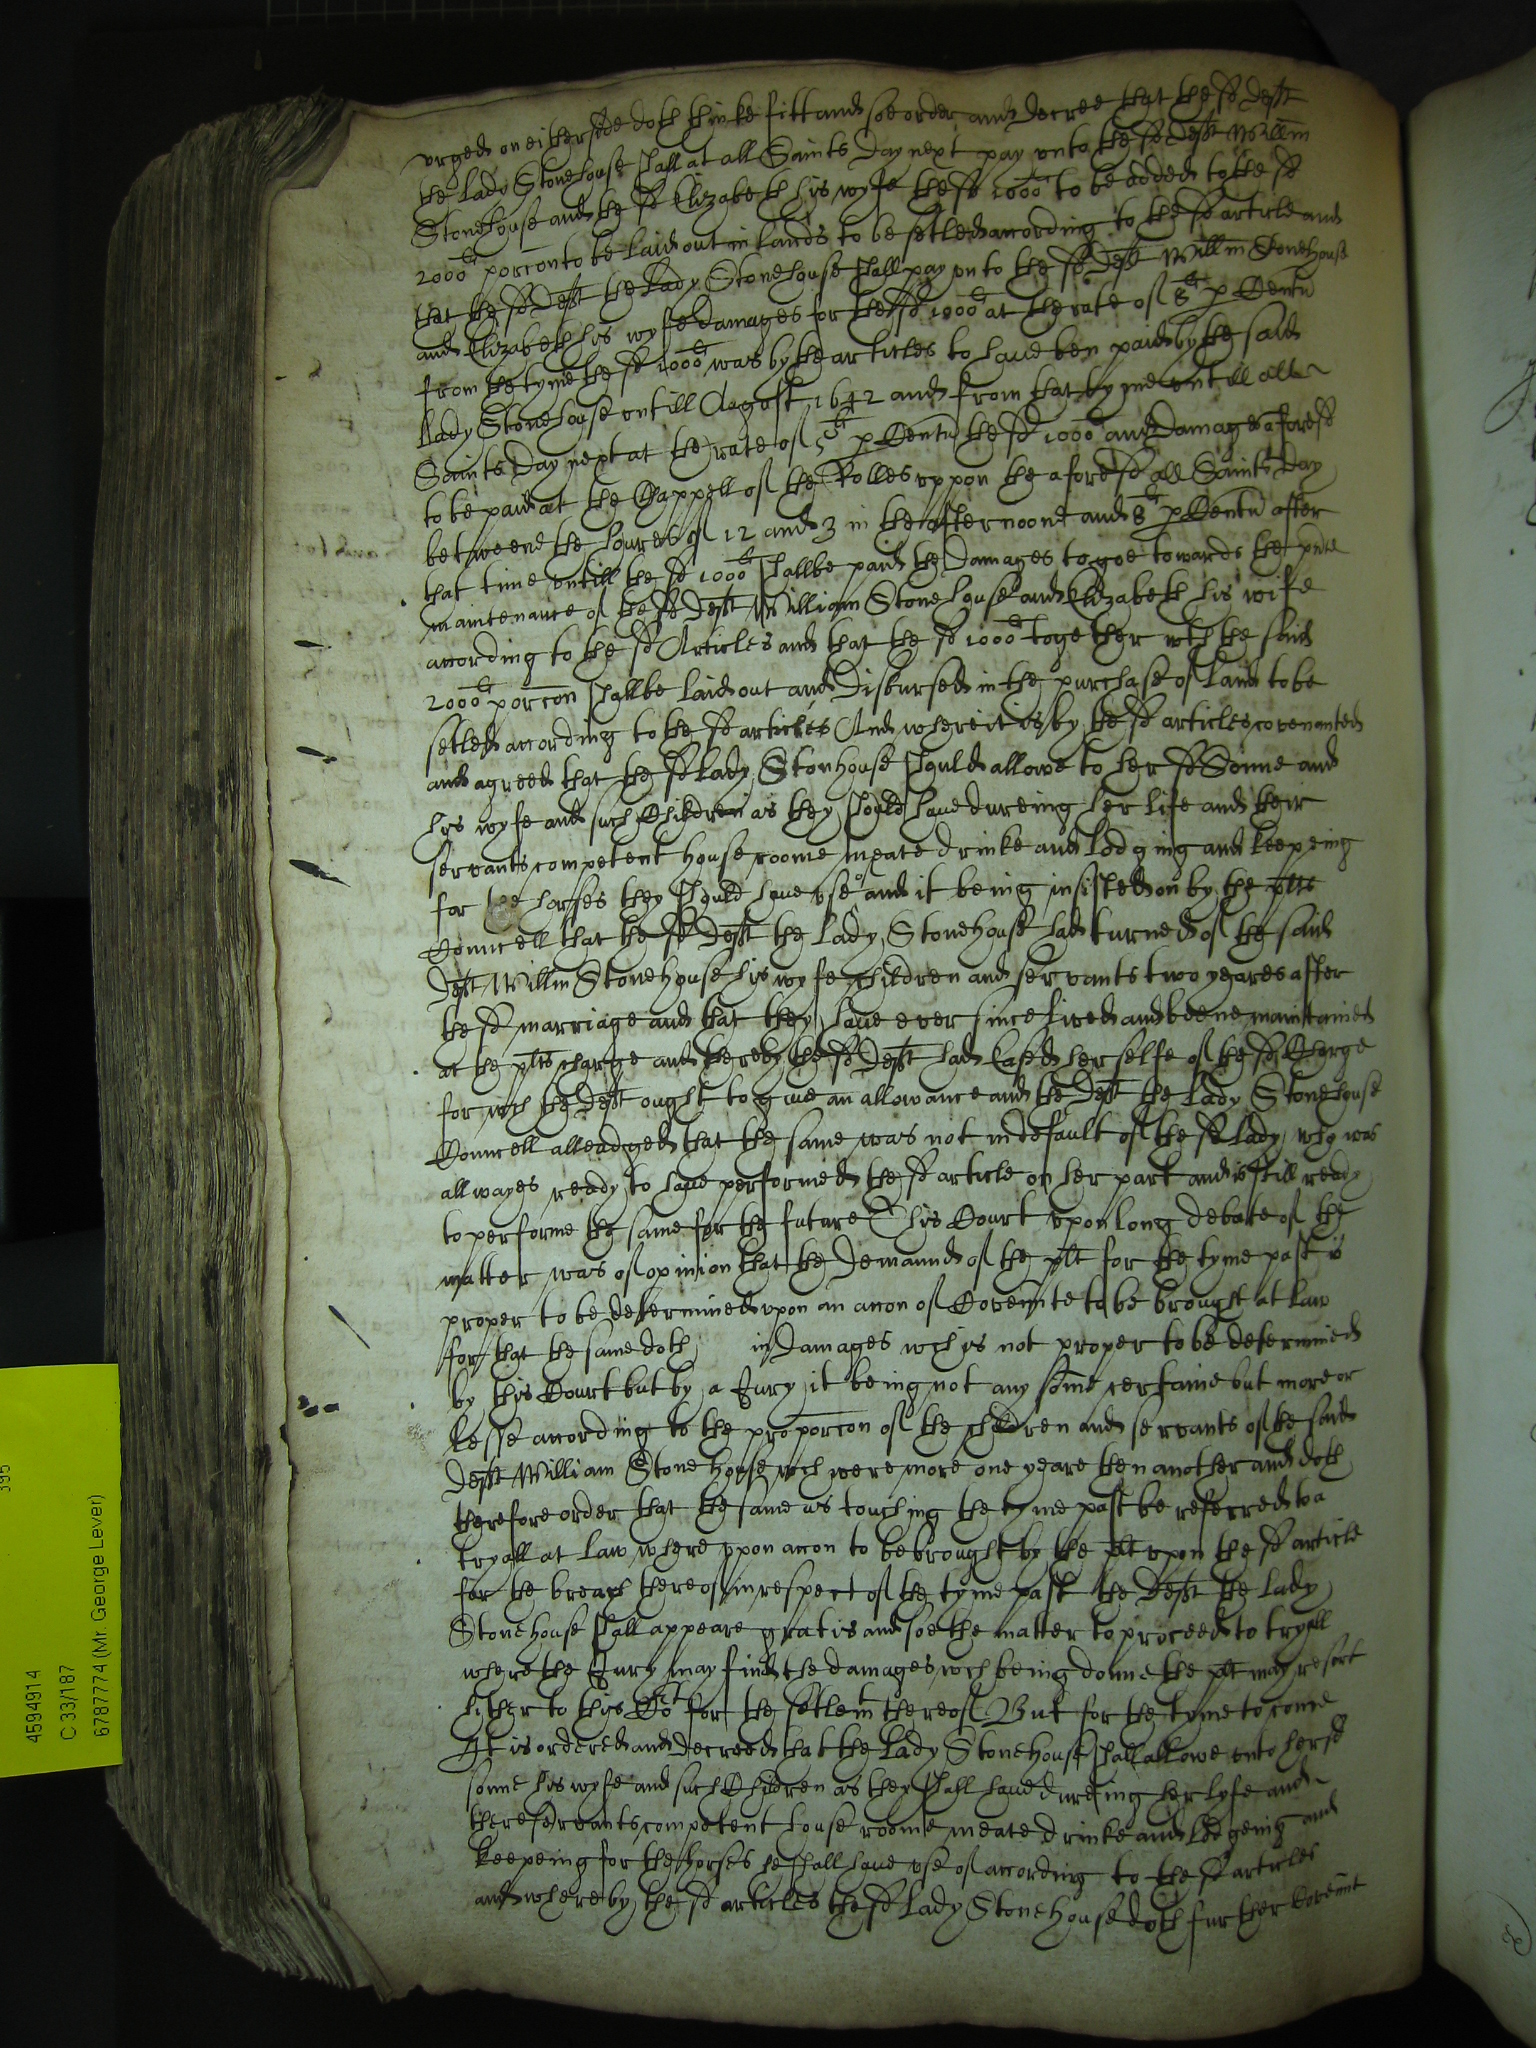 urged on either side doth thinke fitt and soe order and decree that the sd deft
the Lady Stonehouse shall at all Saints day next pay unto the sd deft Willm
Stonehouse and the sd Elizabeth his wyfe the sd 1000li to be added to the sd
2000li porcon to be laid out in lands to be setled according to the sd article and
that the sd deft the Lady Stonehouse shall pay unto the sd deft Willm Stonehouse
and Elizabeth his wyfe damages for the sd 1000li at the rate of 8li p Centu
from the tyme the sd 1000li was by the articles to haue ben paid by the said
Lady Stonehouse untill August 1642 and from that tyme untill all
Saints day next at the rate of 5li p Centu the sd 1000li and damages aforesd
to be paid at the Chappell of the Rolles uppon the aforesd all Saints day
betweene the houres of 12 and 3 in the afternoone and 8li p Centu after
that time untill the sd 1000li shalbe paid the damages to goe towards the pnte
maintenance of the sd deft William Stonehouse and Elizabeth his wife
according to the sd Articles and that the sd 1000li together wth the said
2000li porcon shalbe laid out and disbursed in the purchase of land to be
setled according to the sd articles And where it is by the sd articles covenanted
and agreed that the sd Lady Stonhouse should allowe to her sd Sonne and
his wyfe and such Children as they should haue dureing her life and their
servants competent house roome meate drinke and lodging and keepeing
for the horses they should haue use of and it being insisted on by the plts
Councell that the sd deft the Lady Stonehouse had turned of the said
deft Willm Stonehouse his wyfe children and servants two yeares after
the sd marriage and that they haue ever since lived and beene maintained
at the plts charge and thereby the sd deft had eased herselfe of the sd Charge
for wch the deft ought to giue an allowance and the deft the Lady Stonehouse
Councell alleadged that the same was not in default of the sd Lady who was
allwayes ready to haue performed the sd article on her part and is still ready
to performe the same for the future This Court upon long debate of the
matter was of opinion that the demannd of the plt for the tyme past is
proper to be determined upon an accon of Covennte to be brought at law
for that the same doth in damages wch is not proper to be determined
by this Court but by a Jury it being not any somme certaine but more or
lesse according to the proporcon of the children and servants of the said
deft William Stonehouse wch were more one yeare then another and doth
therefore order that the same as touching the tyme past be referred to a
tryall at law where upon accon to be brought by the plt upon the sd article
for the breach thereof in respect of the tyme past the deft the Lady
Stonehouse shall appeare gratis and soe the matter to proceed to tryall
where the Jury may find the damages wch being donne the plt may resort
hither to this Cort for the setlemt thereof But for the tyme to come
It is ordered and decreed that the Lady Stonehouse shall allowe unto her sd
sonne his wyfe and such Children as they shall haue dureing her lyfe and
there servants competent house roome meate drinke and lodgeing and
keepeing for the horses he shall haue use of according to the sd articles
and whereby the sd articles the sd Lady Stonehouse doth further Covennt
395
4594914
C 33/187
6787774 (Mr. George Lever)